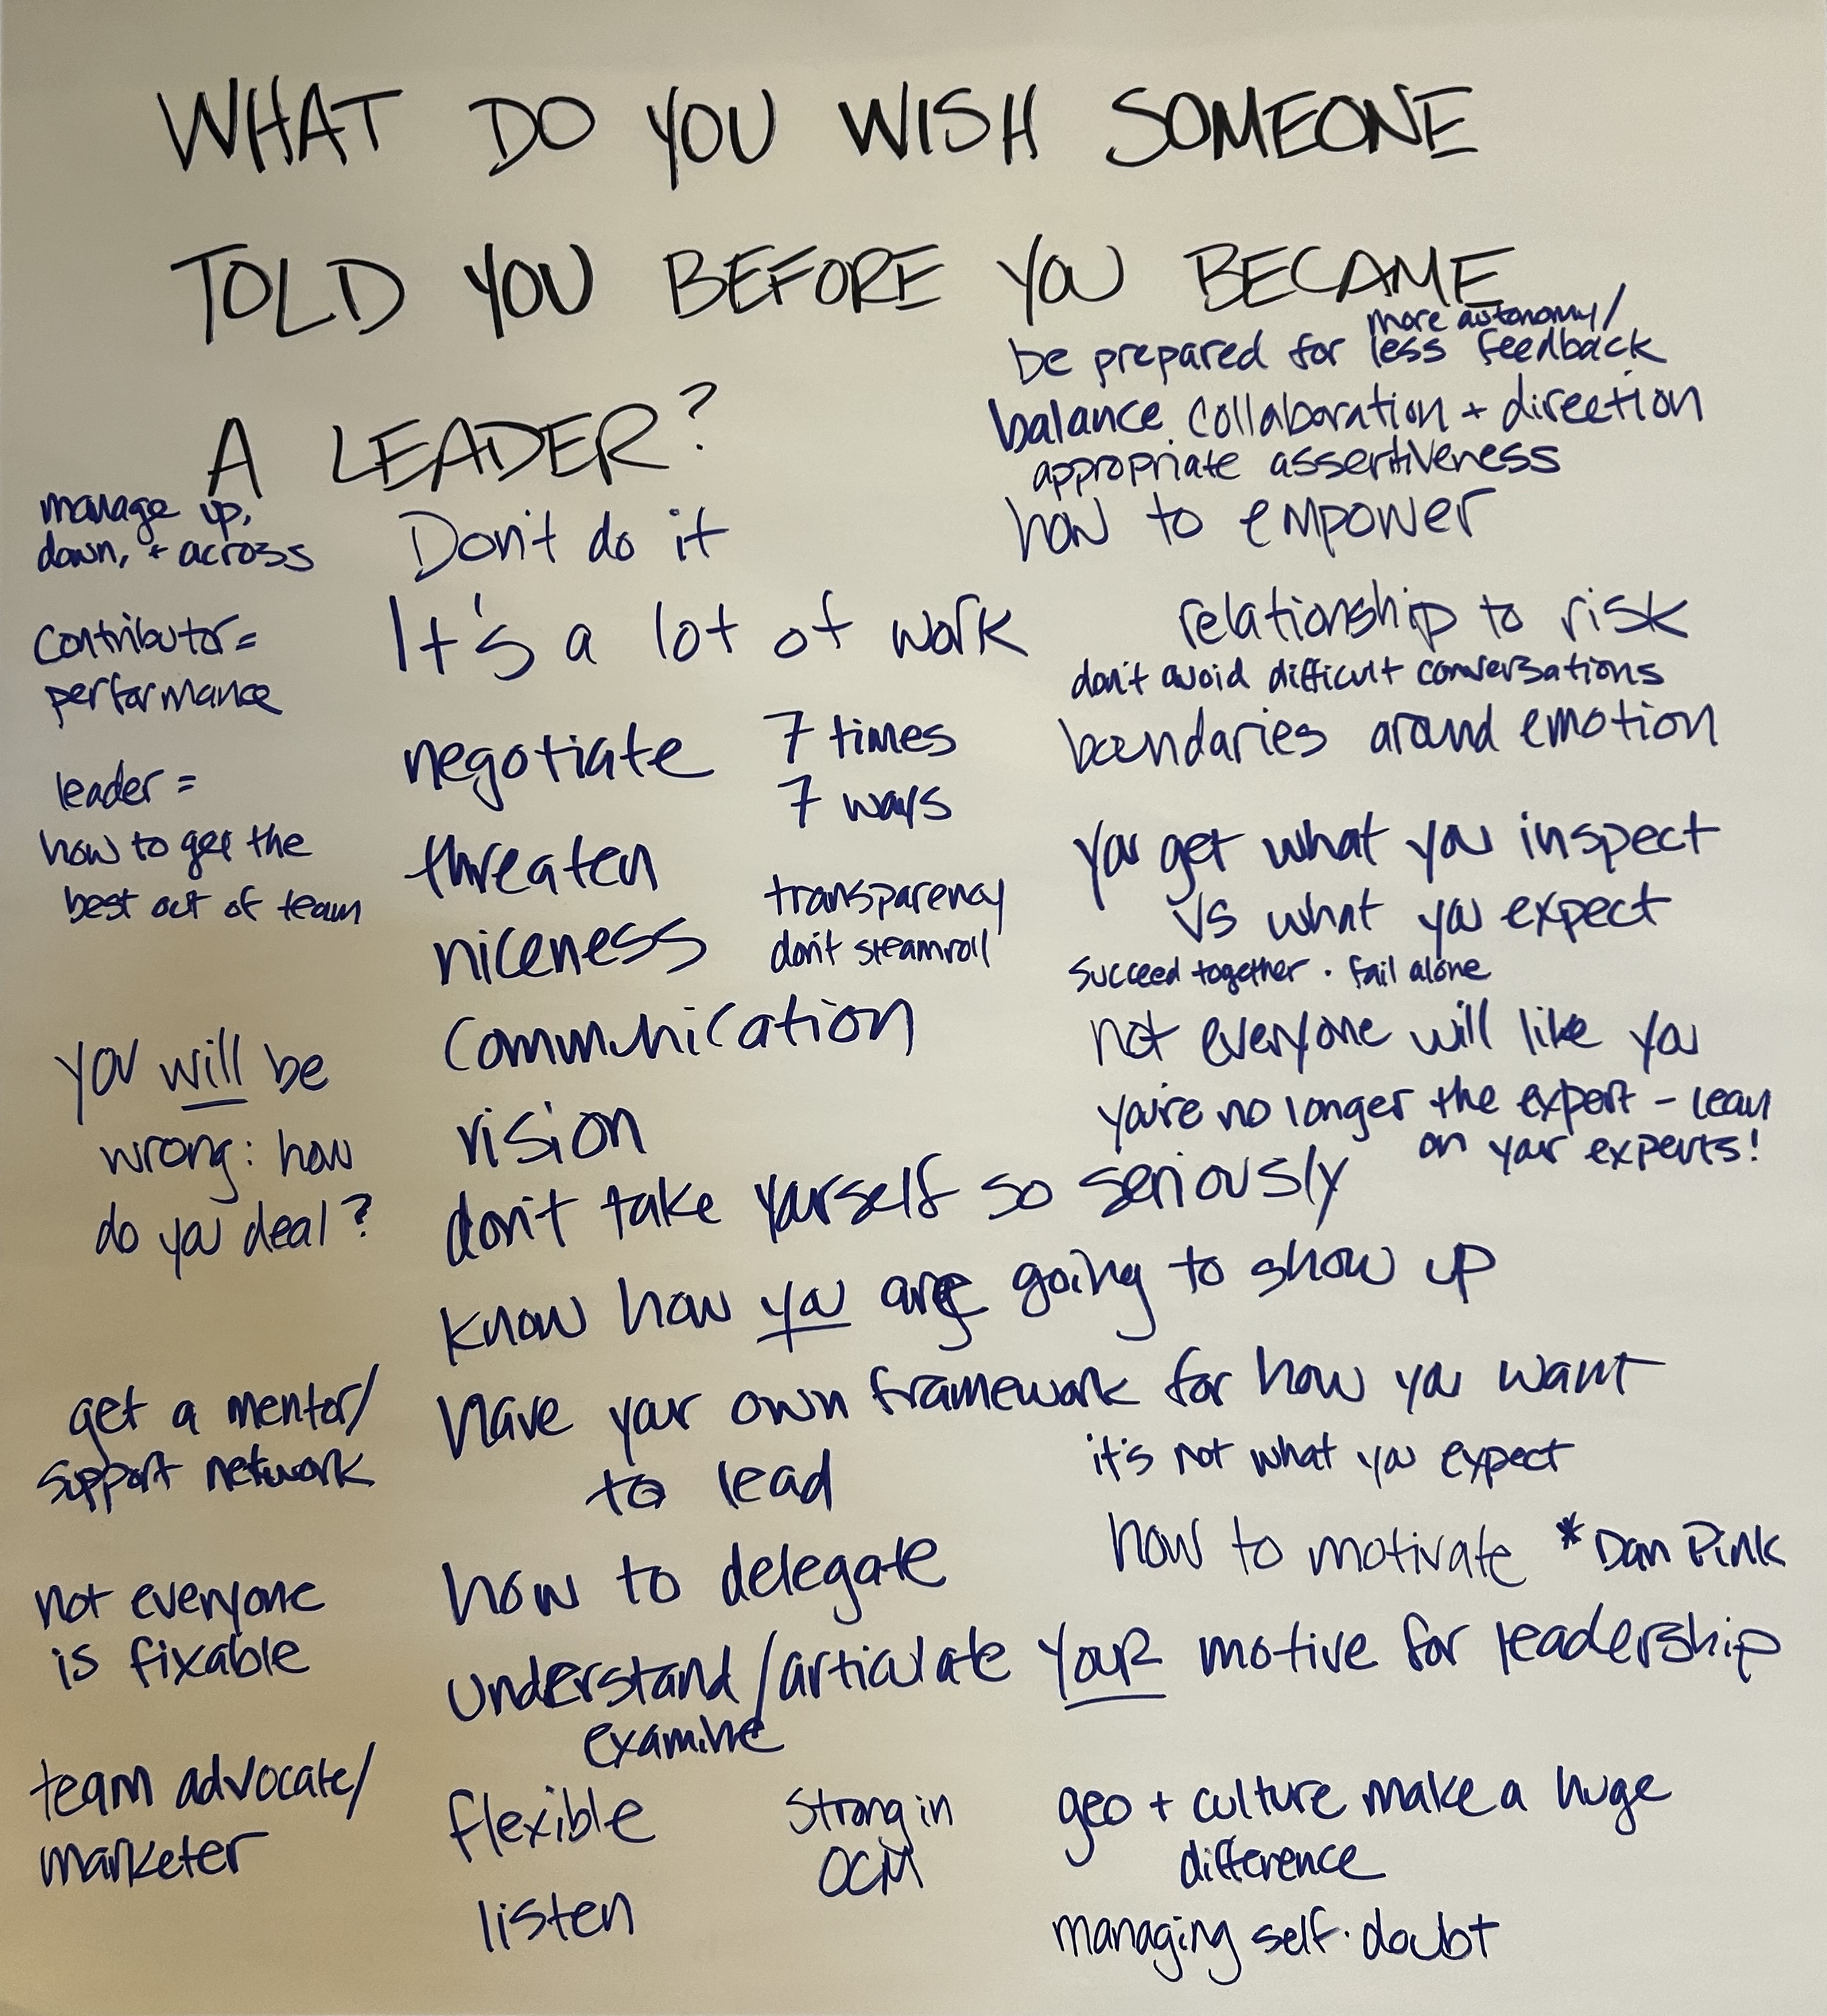 WHAT DO YOU WISH SOMEONE
TOLD YOU BEFORE YOU BECAME
A LEADER?
manage up,
down, + across
contributor =
performance
leader =
how to get the
best out of team
you will be
wrong: how
do you deal?
get a mentor/
support network
not everyone
is fixable
team advocate/
marketer
Don't do it
It's a lot of work
negotiate
threaten
niceness
7 times
7 ways
transparency
don't steamroll
communication
vision
don't take yourself so seriously
know how you are going to show up
have your own framework for how you want
to lead
how to delegate
understand/articulate YOUR motive for leadership
examine
flexible
listen
strong in
OCM
more autonomy/
be prepared for less feedback
balance collaboration + direction
appropriate assertiveness
how to empower
relationship to risk
don't avoid difficult conversations
boundaries around emotion
you get what you inspect
vs what you expect
succeed together · fail alone
not everyone will like you
you're no longer the expert - lean
on your experts!
it's not what you expect
how to motivate * Dan Pink
geo + culture make a huge
difference
managing self-doubt